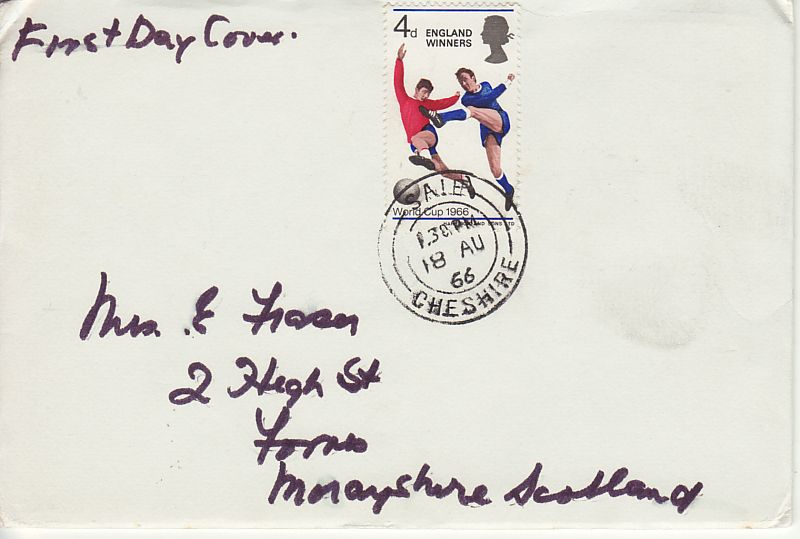 First Day Cover.
4d ENGLAND
WINNERS
World Cup 1966
HARRISON AND SONS LTD
SALE
1.30PM
18 AU
66
CHESHIRE
Mrs. E Fraser
2 High St
Forres
Morayshire Scotland